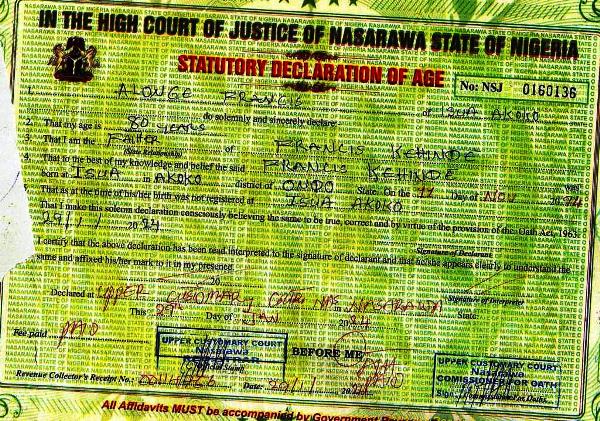 IN THE HIGH COURT OF JUSTICE OF NASARAWA STATE OF NIGERIA
STATUTORY DECLARATION OF AGE
No: NSJ 0160136
1. ALONGE FRANCIS of ISUA AKOKO
do solemnly and sincerely declare:
2. That my age is 80 YEARS
3. That I am the FATHER of FRANCIS KEHINDE
4. That to the best of my knowledge and belief the said FRANCIS KEHINDE
born at ISUA in AKOKO district of ONDO State. On the 11 Day of NOV
That as at the time of his/her birth was not registered at ISUA AKOKO
That I make this solemn declaration consciously believing the same to be true, correct and by virtue of the provision of the Oath Act, 1963.
29/1/ 20 24
Signature of Declarant
I certify that the above declaration has been read interpreted to the signature of declarant and that he/she appears clearly to understand the
same and affixed his/her mark to it in my presence
20
Signature of Interpreter
Declared at UPPER CUSTOMARY COURT NAS NASARAWA State.
This 29 Day of JAN 20 24
Fee paid PAID
UPPER CUSTOMARY COURT
Nasarawa
BEFORE ME
PAID
UPPER CUSTOMARY COURT
Nasarawa
COMISSIONER FOR OATH
Sign
Commissioner For Oaths
Revenue Collector's Receipt No.: Date: 29/1/ 20
All Affidavits MUST be accompanied by Government